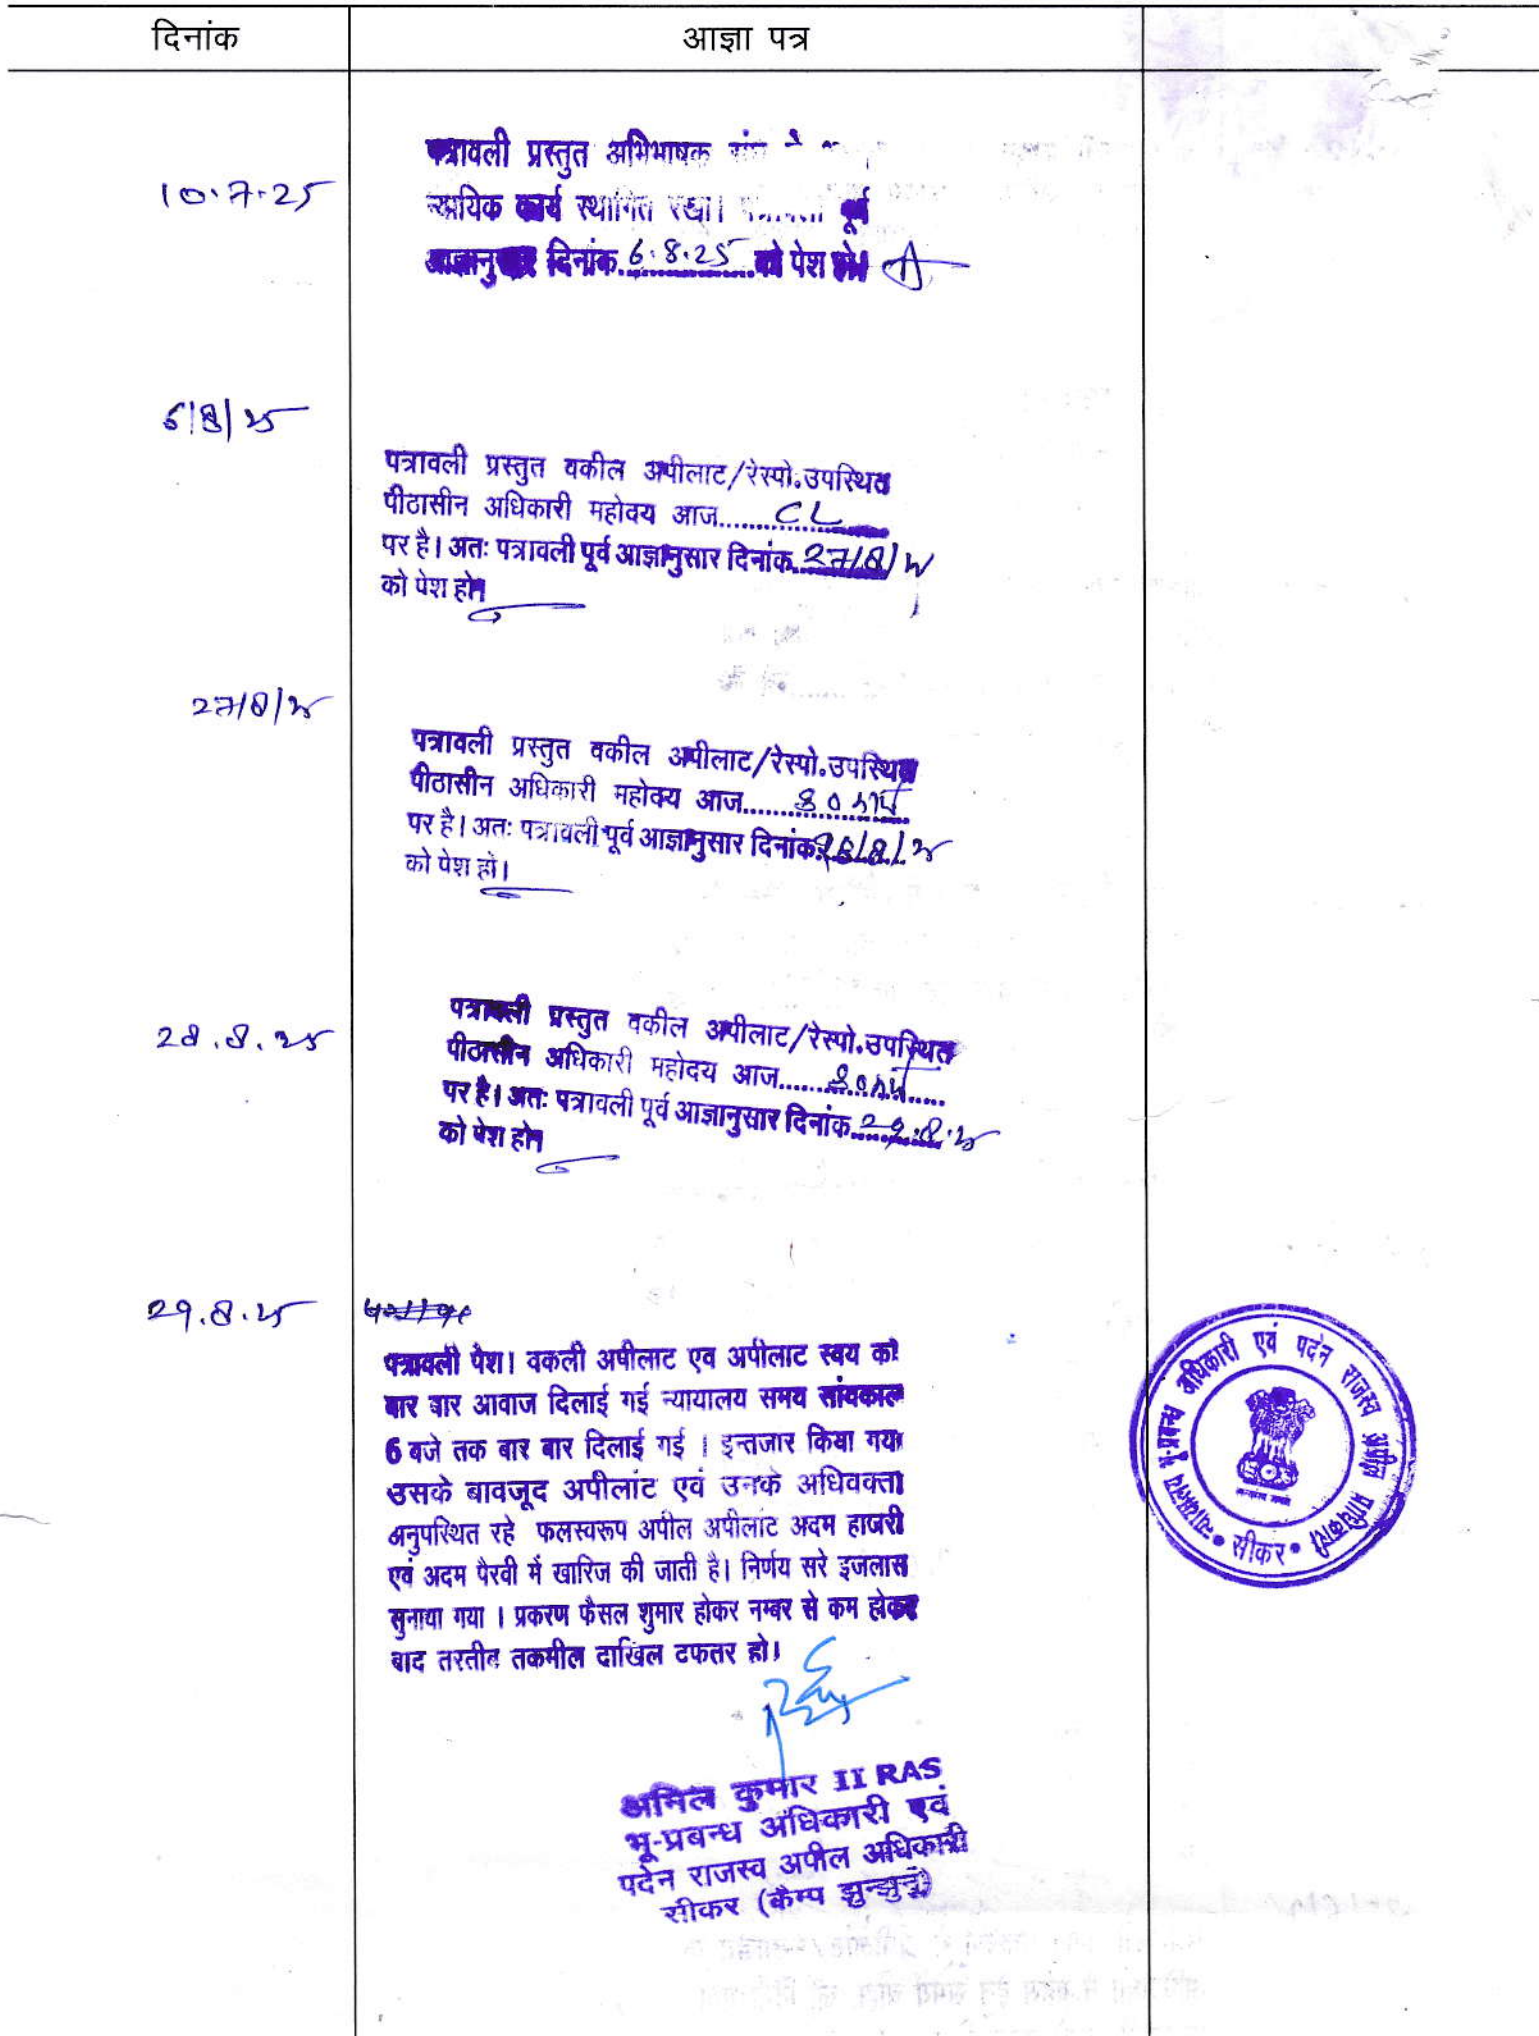 दिनांक
आज्ञा पत्र
10.7.25
पत्रावली प्रस्तुत अभिभाषक
न्यायिक कार्य स्थगित रखा। पत्रावली पूर्व
आज्ञानुसार दिनांक 6.8.25 को पेश हो।
6/8/25
पत्रावली प्रस्तुत वकील अपीलाट/रेस्पो.उपस्थित
पीठासीन अधिकारी महोदय आज......CL
पर है। अतः पत्रावली पूर्व आज्ञानुसार दिनांक 27/8/25
को पेश हो।
27/8/25
पत्रावली प्रस्तुत वकील अपीलाट/रेस्पो.उपस्थित
पीठासीन अधिकारी महोदय आज......
पर है। अतः पत्रावली पूर्व आज्ञानुसार दिनांक 28/8/25
को पेश हो।
28.8.25
पत्रावली प्रस्तुत वकील अपीलाट/रेस्पो.उपस्थित
पीठासीन अधिकारी महोदय आज......
पर है। अतः पत्रावली पूर्व आज्ञानुसार दिनांक 29.8.25
को पेश हो।
29.8.25
पत्रावली पेश। वकली अपीलाट एव अपीलाट स्वय को
बार बार आवाज दिलाई गई न्यायालय समय सांयकाल
6 बजे तक बार बार दिलाई गई । इन्तजार किया गया
उसके बावजूद अपीलांट एवं उनके अधिवक्ता
अनुपस्थित रहे फलस्वरूप अपील अपीलांट अदम हाजरी
एवं अदम पैरवी में खारिज की जाती है। निर्णय सरे इजलास
सुनाया गया । प्रकरण फैसल शुमार होकर नम्बर से कम होकर
बाद तरतीब तकमील दाखिल दफतर हो।
न्यायालय भू-प्रबन्ध अधिकारी एवं पदेन राजस्व अपील प्राधिकारी
• सीकर •
अनिल कुमार II RAS
भू-प्रबन्ध अधिकारी एवं
पदेन राजस्व अपील अधिकारी
सीकर (कैम्प झुन्झुनूं)